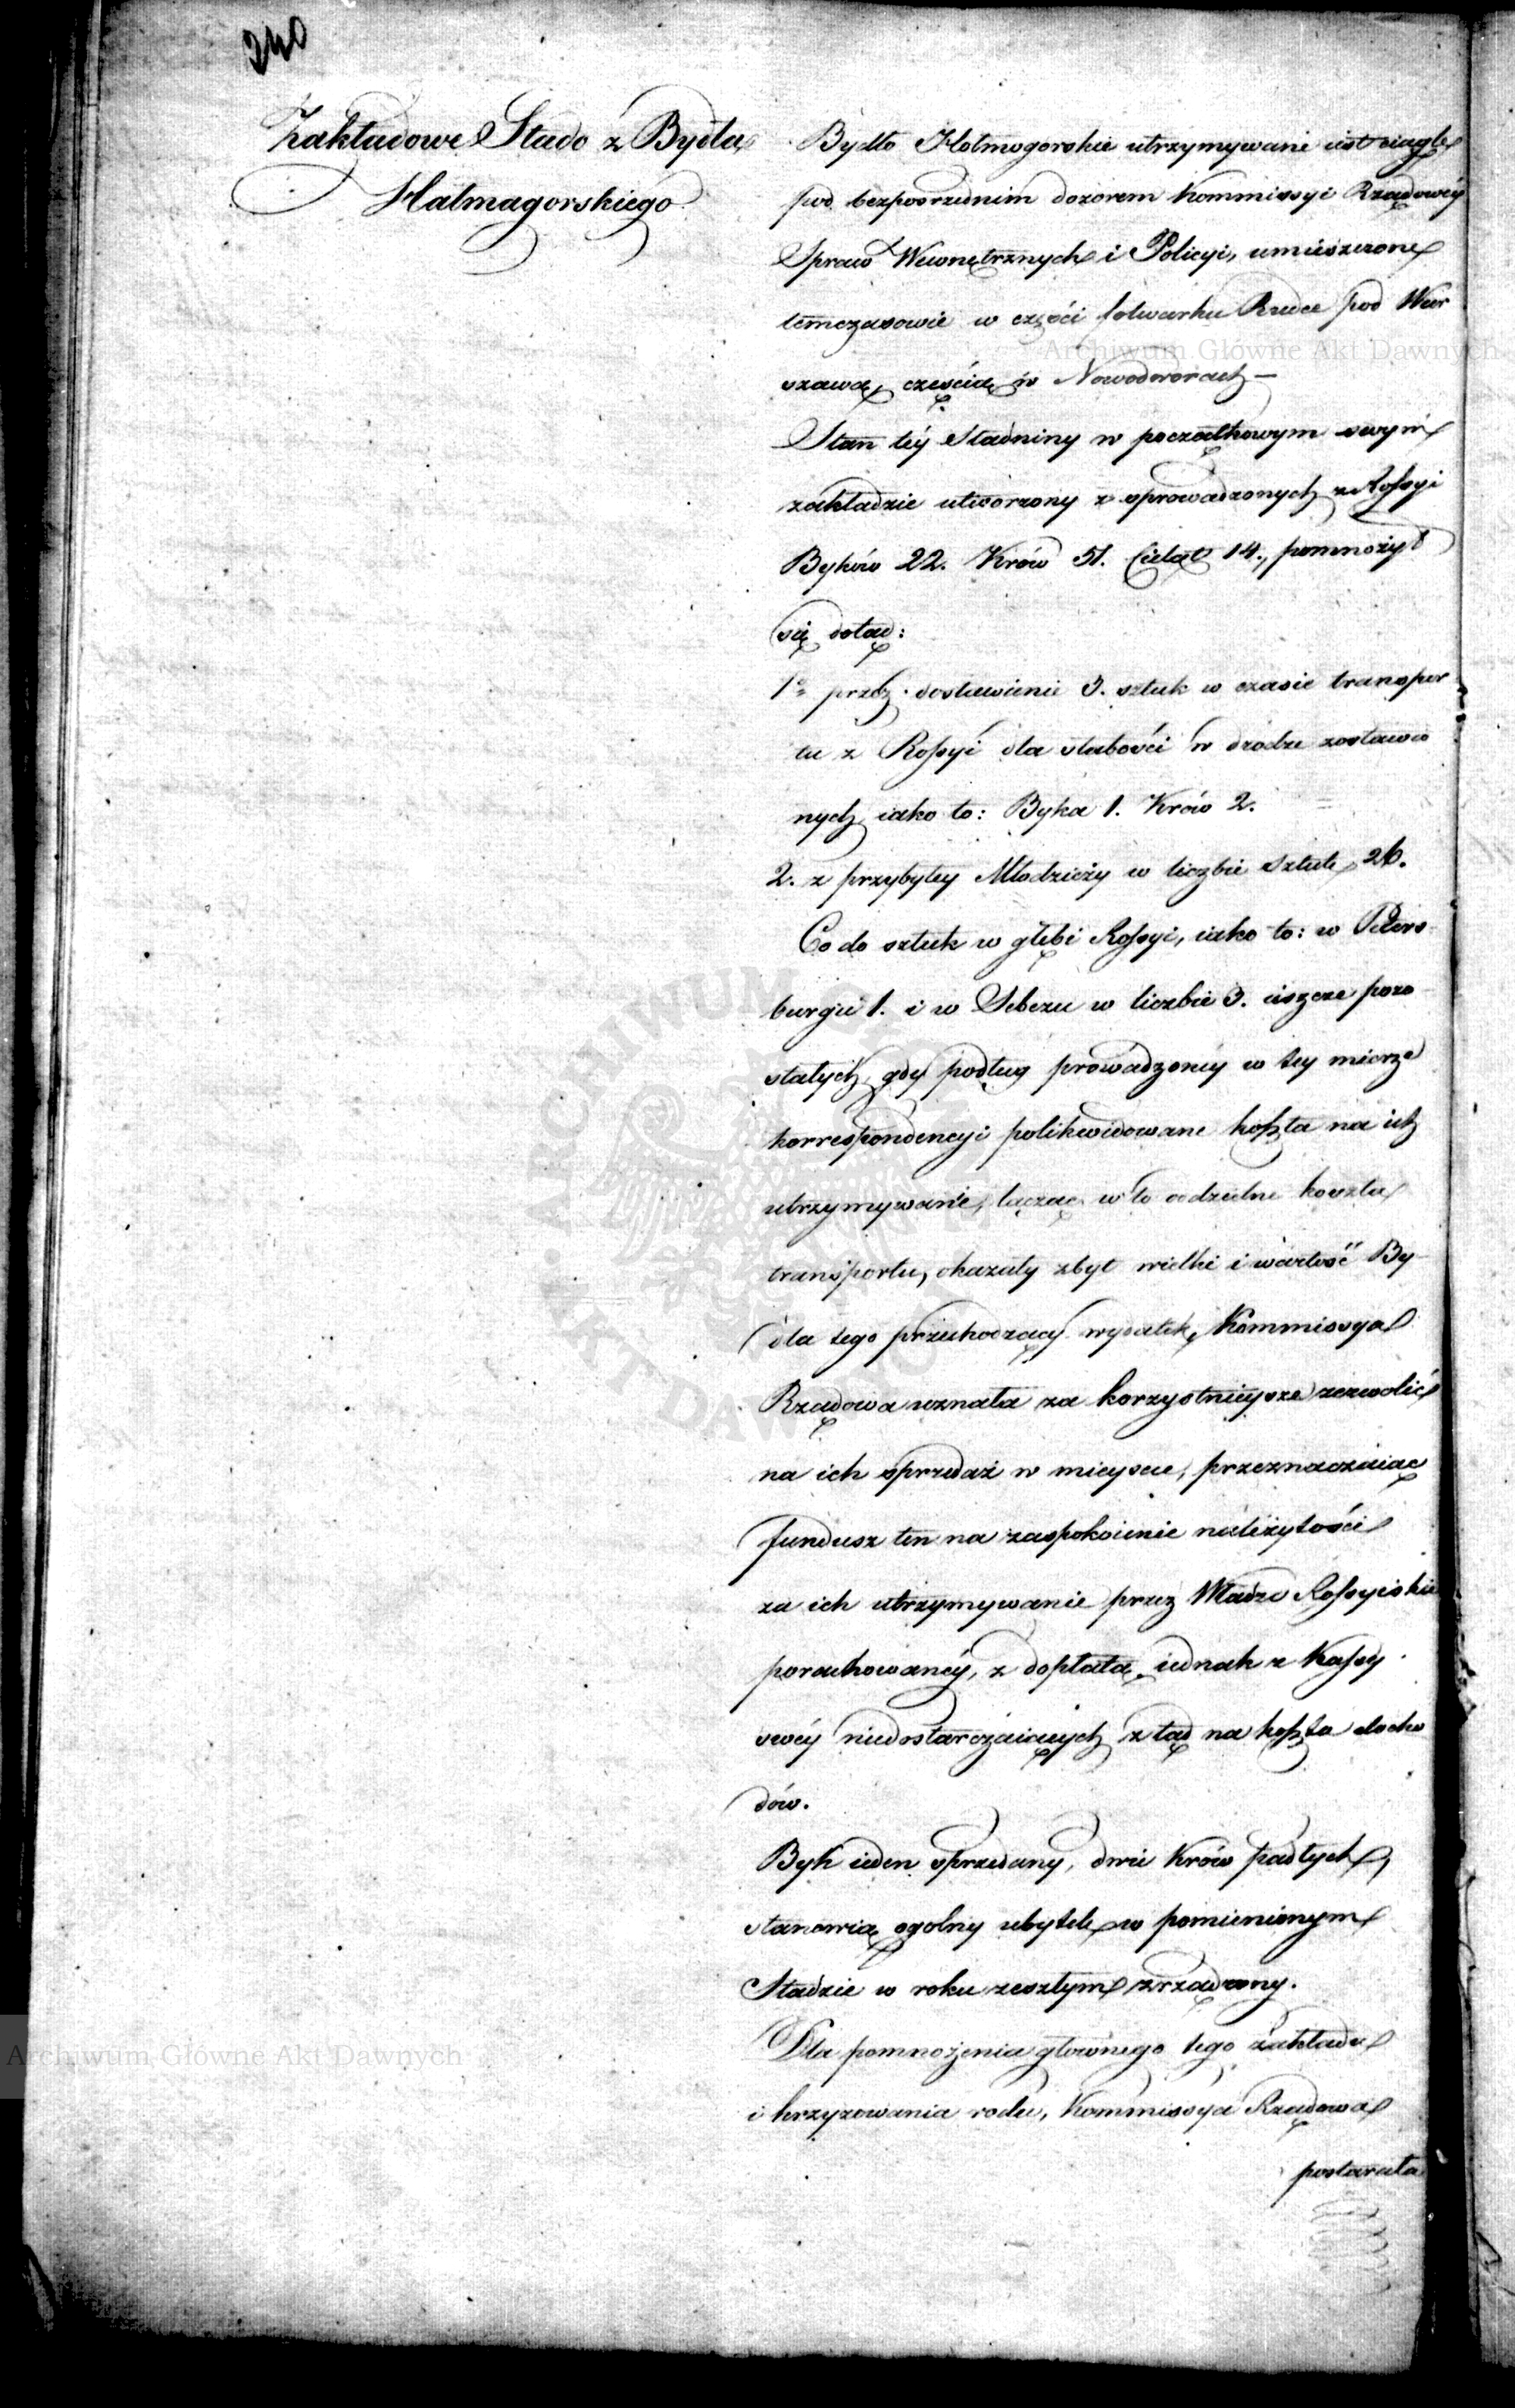 240
Zakładowe Stado z Bydła
Halmagorskiego
Bydło Hołmogorskie utrzymywane iest ciągle
pod bezpośrzednim dozorem Kommissyi Rządowéy
Spraw Wewnętrznych i Policyi, umieszczone
temczasowie w części folwarku Rudce pod War
szawą, częścią w Nowodworach —
Stan téy Stadniny w początkowym swym
zakładzie utworzony z sprowadzonych z Rossyi
Byków 22. Krów 51. Cieląt 14., pomnożył
się dotąd:
1o przez dostawienie 3. sztuk w czasie transpor
tu z Rossyi dla słabości w drodze zostawio
nych iako to: Byka 1. Krów 2.
2. z przybyłey Młodzieży w liczbie Sztuk 26.
Co do sztuk w głębi Rossyi, iako to: w Peters
burgu 1. i w Sebezu w liczbie 3. ieszcze pozo
stałych, gdy podług prowadzonéy w tey mierze
korrespondencyi polikwidowane koszta na ich
utrzymywanie, łącząc w to oddzielne koszta
transportu, okazały zbyt wielki i wartość By-
dła tego przechodzący wydatek, Kommissya
Rządowa uznała za korzystnieysze zezwolić
na ich sprzedaż w mieyscu, przeznaczaiąc
fundusz ten na zaspokoienie należytości
za ich utrzymywanie przez Władze Rossyiskie
porachowanéy, z dopłatą iednak z Kassy
swéy niedostarczaiących ztąd na koszta docho
dów.
Byk ieden sprzedany, dwie Krów padłych,
stanowią ogolny ubytek w pomienionym
Stadzie w roku zeszłym zrządzony.
Dla pomnożenia głównego tego zakładu
i krzyzowania rodu, Kommissya Rządowa
postarała
Archiwum Główne Akt Dawnych
Archiwum Główne Akt Dawnych
ARCHIWUM
AKT DAWNYCH